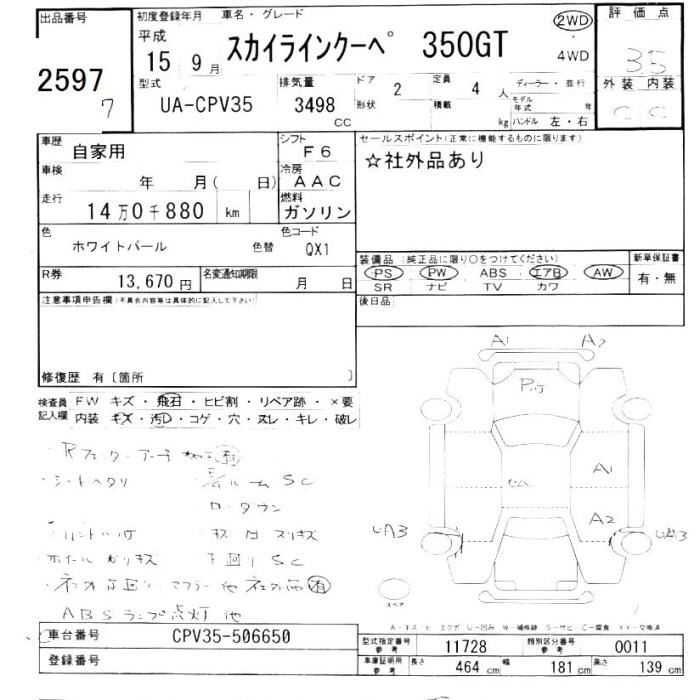 出品番号 初度登録年月 車名・グレード 2WD 評価点
平成 15 9月 スカイラインクーペ 350GT 4WD 3.5
2597 型式 排気量 ドア 2 定員 4人 ディーラー・並行 外装 内装
7 UA-CPV35 3498 CC 形状 積載 kg モデル年式 年 ハンドル 左・右 C C
車歴 自家用 シフト F6 セールスポイント(正常に機能するものに限ります)
車検 年 月( 日) 冷房 AAC ☆社外品あり
走行 14万0千880 km 燃料 ガソリン
色 ホワイトパール 色替 色コード QX1 装備品(純正品に限り○をつけてください) 新車保証書
R券 13,670円 名変通知期限 月 日 PS PW ABS エアB AW 有・無
SR ナビ TV カワ
注意事項申告欄(不具合内容等は具体的に記入して下さい) 後日品
A1 A2
修復歴 有〔箇所 〕
検査員 FW キズ・飛石・ヒビ割・リペア跡・×要
記入欄 内装・キズ・汚レ・コゲ・穴・ヌレ・キレ・破レ
・シートヘタリ ルーム SC A1
ローダウン A2
UA3 UA3
・ホイールガリキズ 下回り SC
有
ABSランプ点灯 他
スペア
A-キズ E-エクボ U-凹み W-補修跡 S-サビ C-腐食 XX-交換済
車台番号 CPV35-506650 型式指定番号 参考 11728 類別区分番号 参考 0011
登録番号 車庫証明用 参考 長さ 464 cm 幅 181 cm 高さ 139 cm